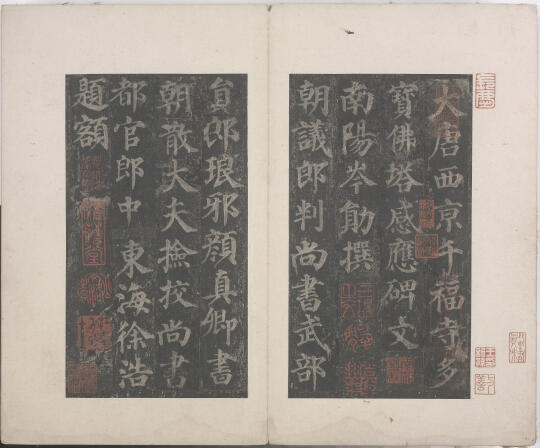 大唐西京千福寺多
寶佛塔感應碑文
南陽岑勛撰
朝議郎判尚書武部
員郎琅邪顏真卿書
朝散大夫撿挍尚書
都官郎中 東海徐浩
題額